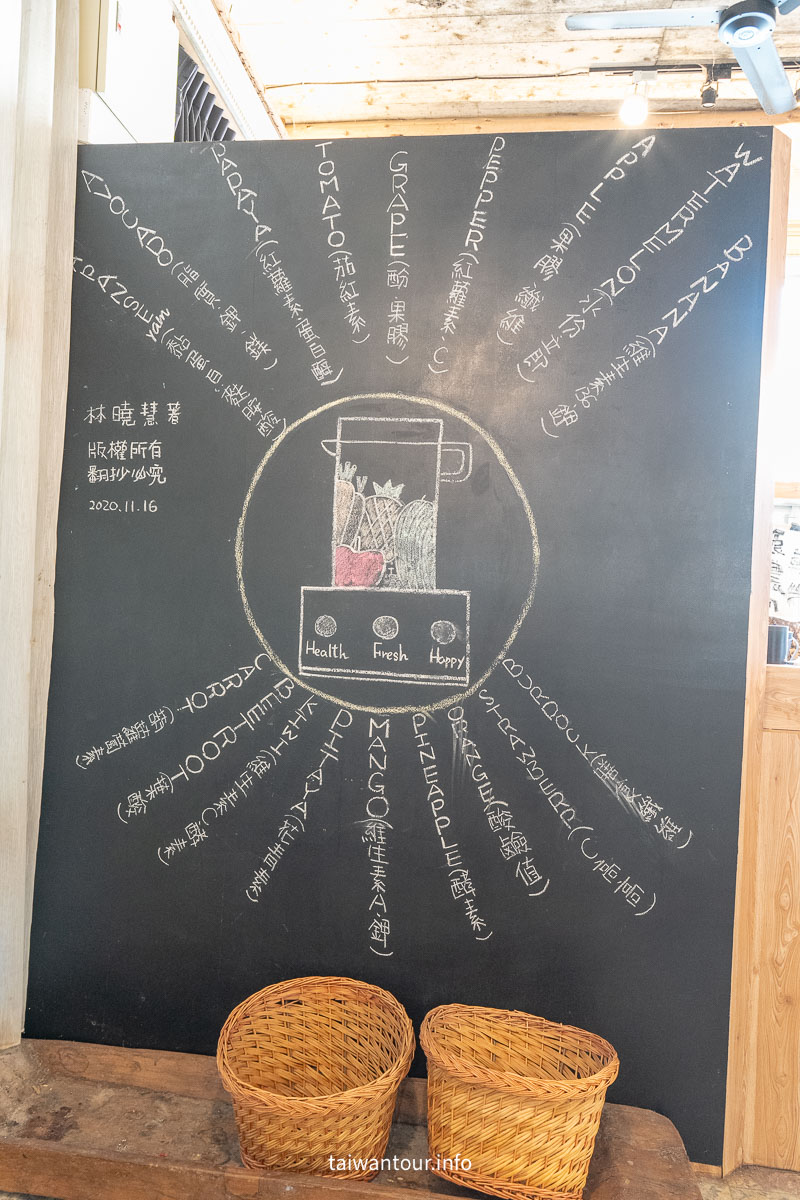 AVOCADO(脂質、鉀、鎂)
PAPAYA(紅蘿蔔素、蛋白酶)
TOMATO(茄紅素)
GRAPE(酚、果膠)
PEPPER(紅蘿蔔素、C)
APPLE(果膠、纖維)
WATERMELON(水份
BANANA(維生素
APANSE yam(黏蛋白、
林曉慧著
版權所有
翻抄必究
2020.11.16
Health Fresh Happy
CARROT(胡蘿蔔素)
BEETROOT(葉酸)
KIWI(維生素C酵素)
PITAYA(花青素)
MANGO(維生素A、鉀)
PINEAPPLE(酵素)
ORANGE(酸鹼值)
STRAWBERRY(C高高)
BURDOCK(膳食纖維)
taiwantour.info